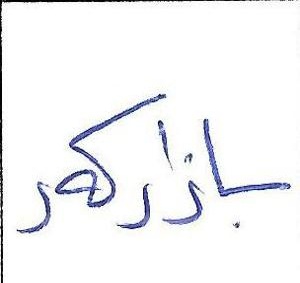 بازارکهر